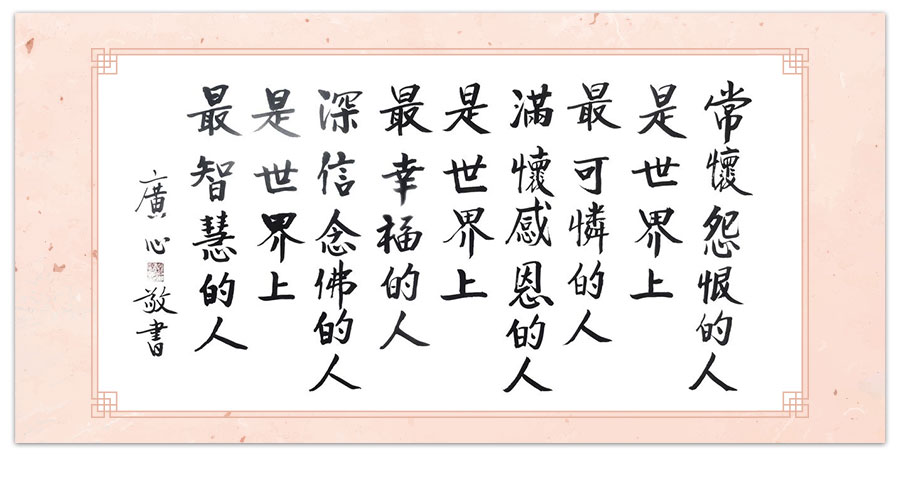 常懷怨恨的人
是世界上
最可憐的人
滿懷感恩的人
是世界上
最幸福的人
深信念佛的人
是世界上
最智慧的人
廣心敬書